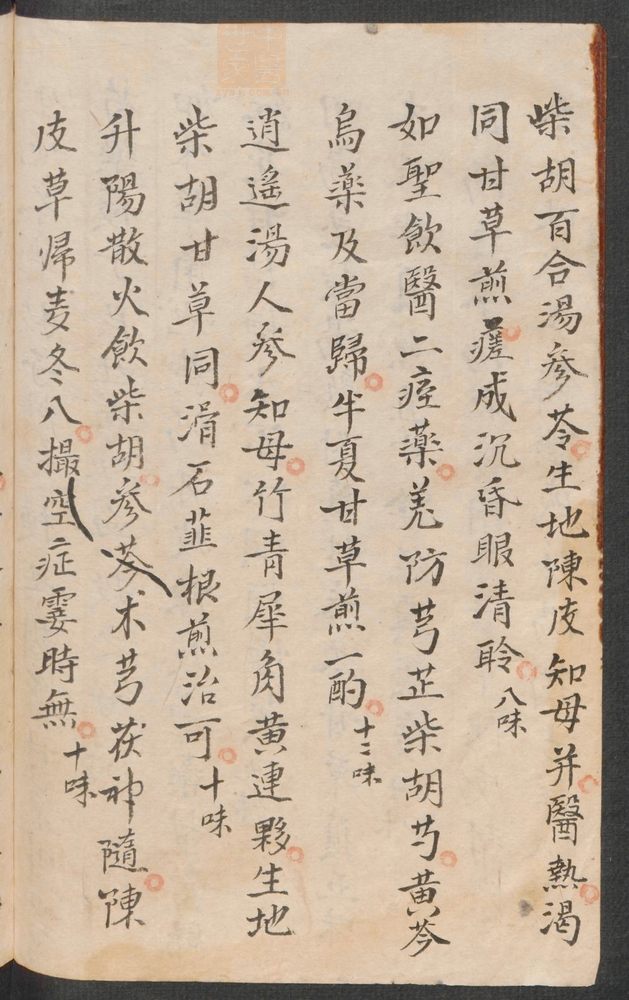 柴胡百合湯參苓生地陳皮知母并醫熱渴
同甘草煎瘥成沉昏眼清聆八味
如聖飲醫二痓藥羌防芎芷柴胡芍黃芩
烏薬及當歸半夏甘草煎一酌十二味
逍遙湯人參知母竹青犀角黃連夥生地
柴胡甘草同滑石韮根煎治可十味
升陽散火飲柴胡參芩术芎茯神隨陳
皮草帰麦冬八撮空症霎時無十味